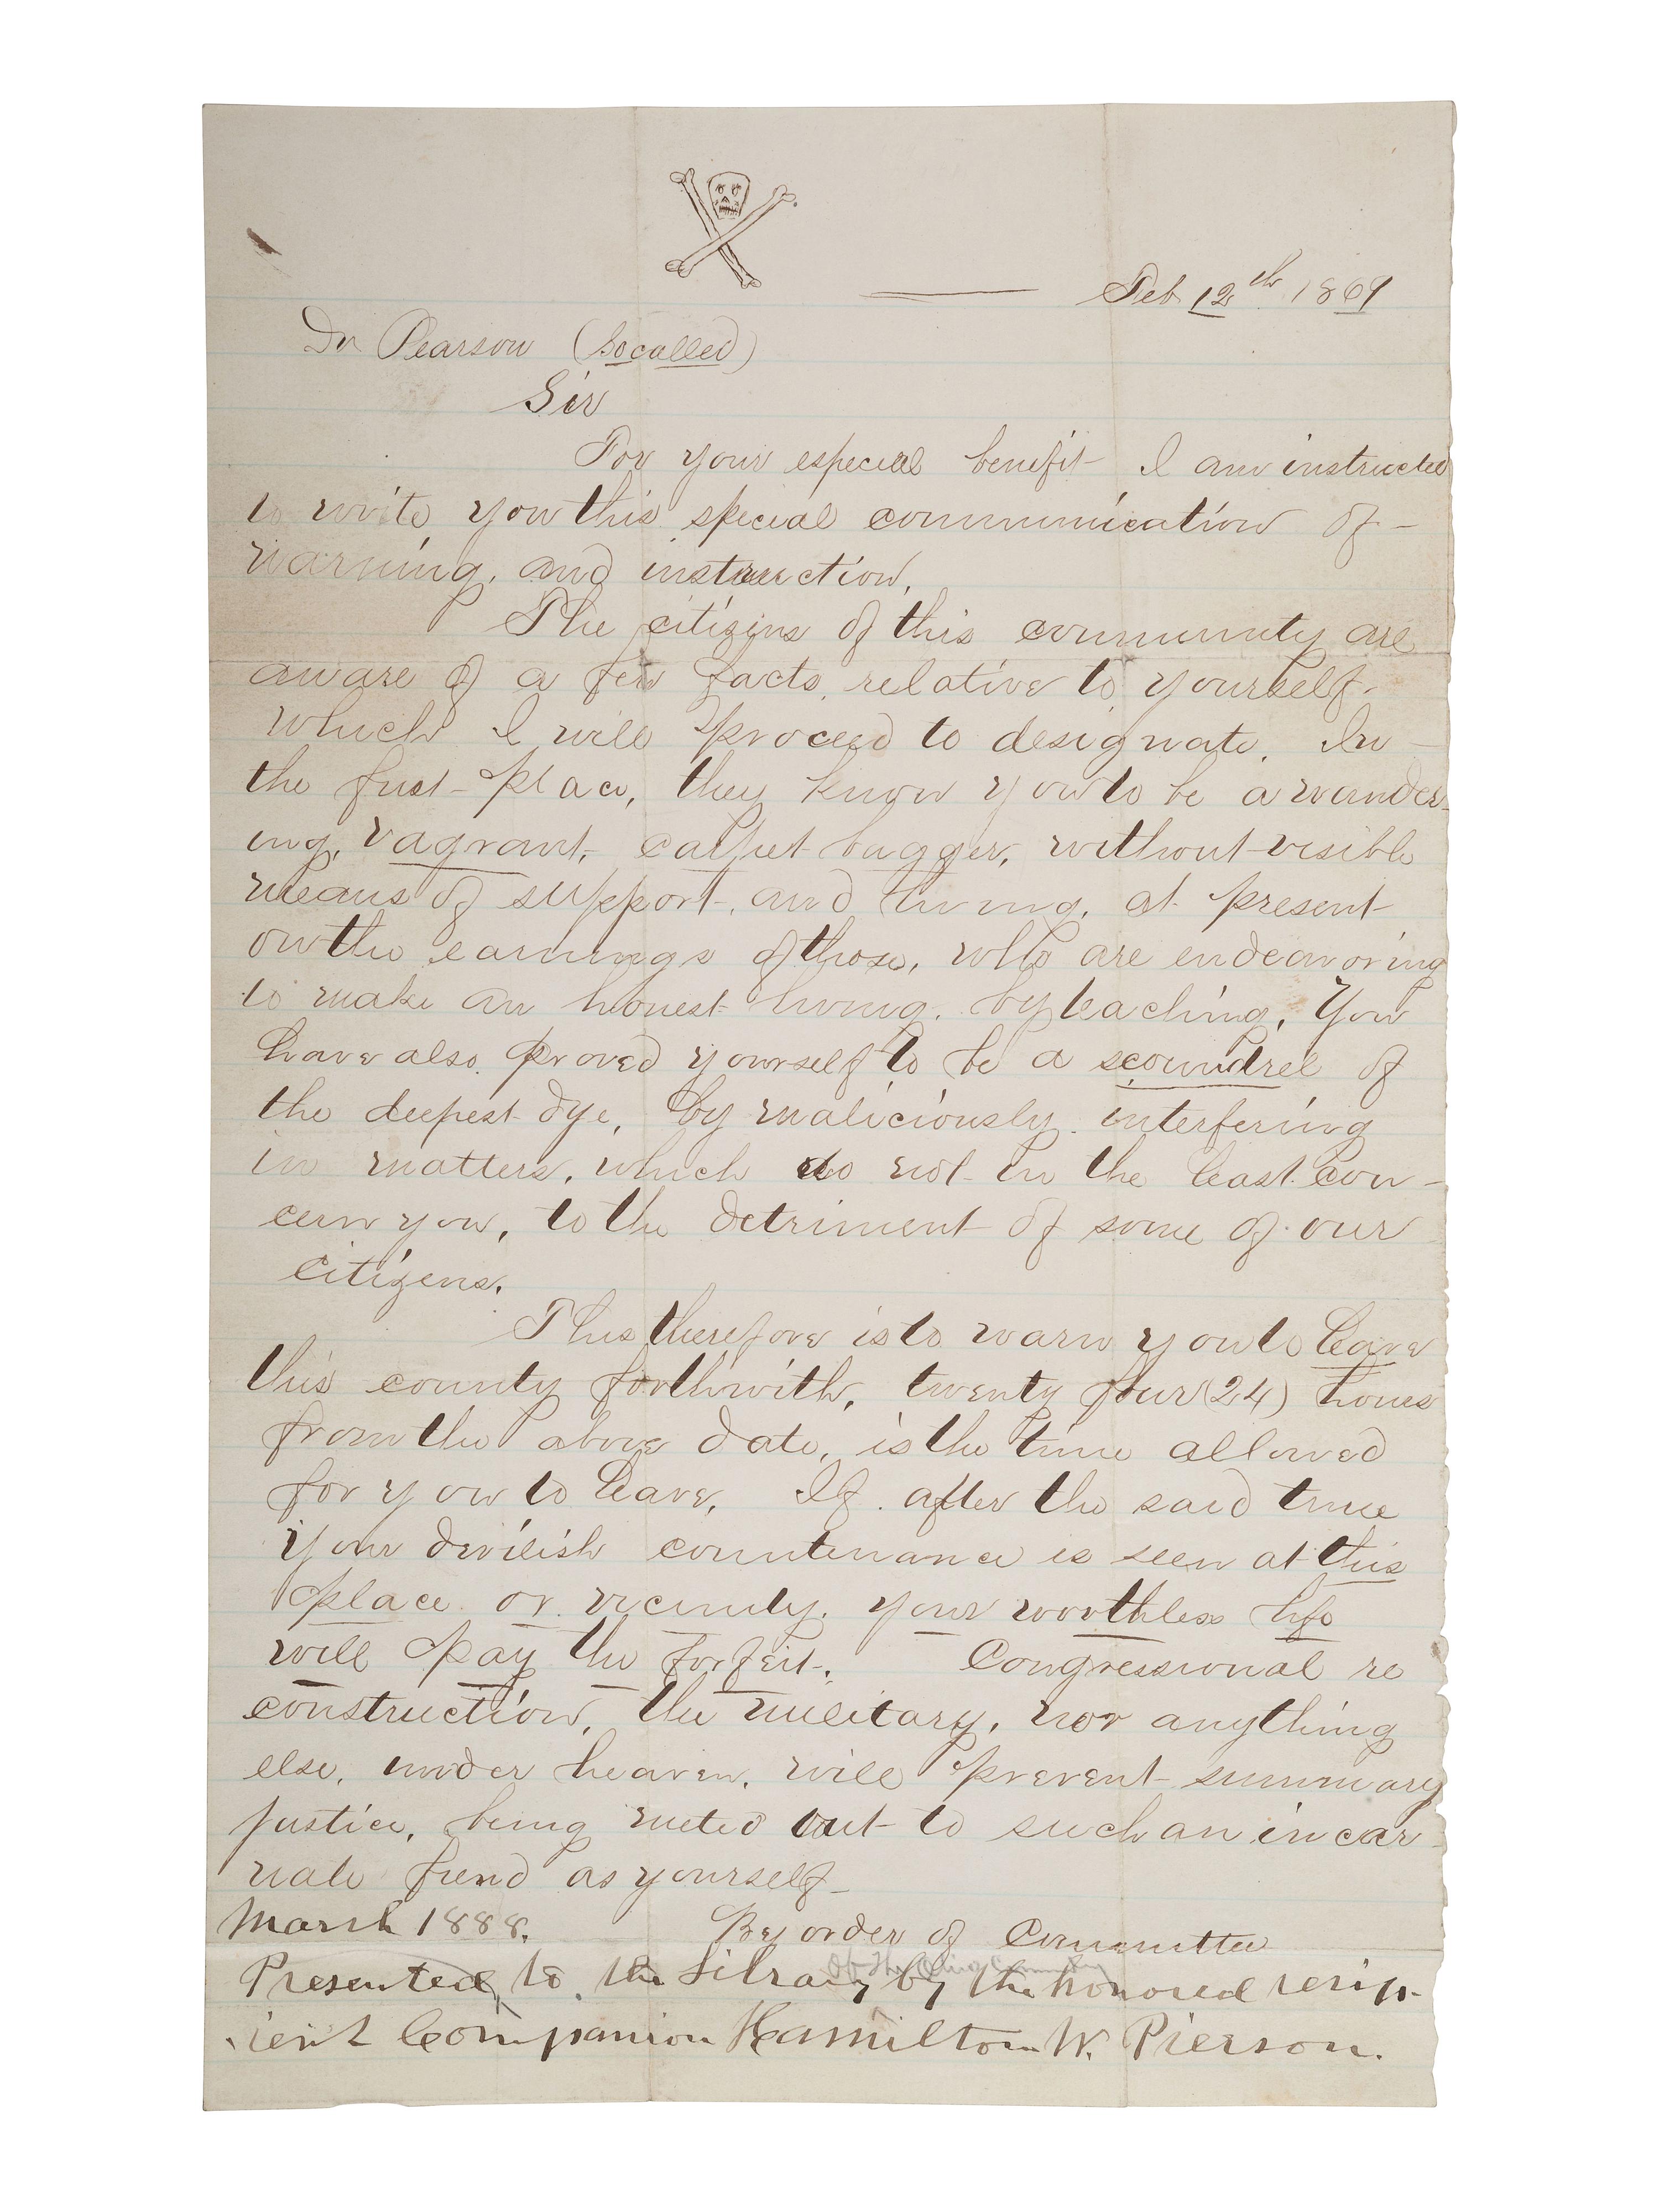 Feb 12th 1869
Dr Pearson (so called)
Sir
For your especial benefit I am instructed
to write you this special communication of
warning, and instruction.
The citizens of this community are
aware of a few facts, relative to yourself.
which I will proceed to designate. In
the first place, they know you to be a wander-
ing, vagrant, carpet-bagger, without visible
means of support, and living, at present
on the earnings of those, who are endeavoring
to make an honest living, by teaching, You
have also proved yourself to be a scoundrel of
the deepest dye, by maliciously interfering
in matters, which do not in the least con-
cern you, to the detriment of some of our
citizens.
This therefore is to warn you to leave
this county forthwith, twenty four (24) hours
from the above date, is the time allowed
for you to leave. If after the said time
your devilish countenance is seen at this
place or vicinity, your worthless life
will pay the forfeit. Congressional re
construction, the military, nor anything
else, under heaven, will prevent summary
justice, being meted out to such an incar-
nate fiend as yourself
March 1888. By order of Committee
Presented, to the Library by the honored recip-
ient Companion Hamilton W. Pierson.